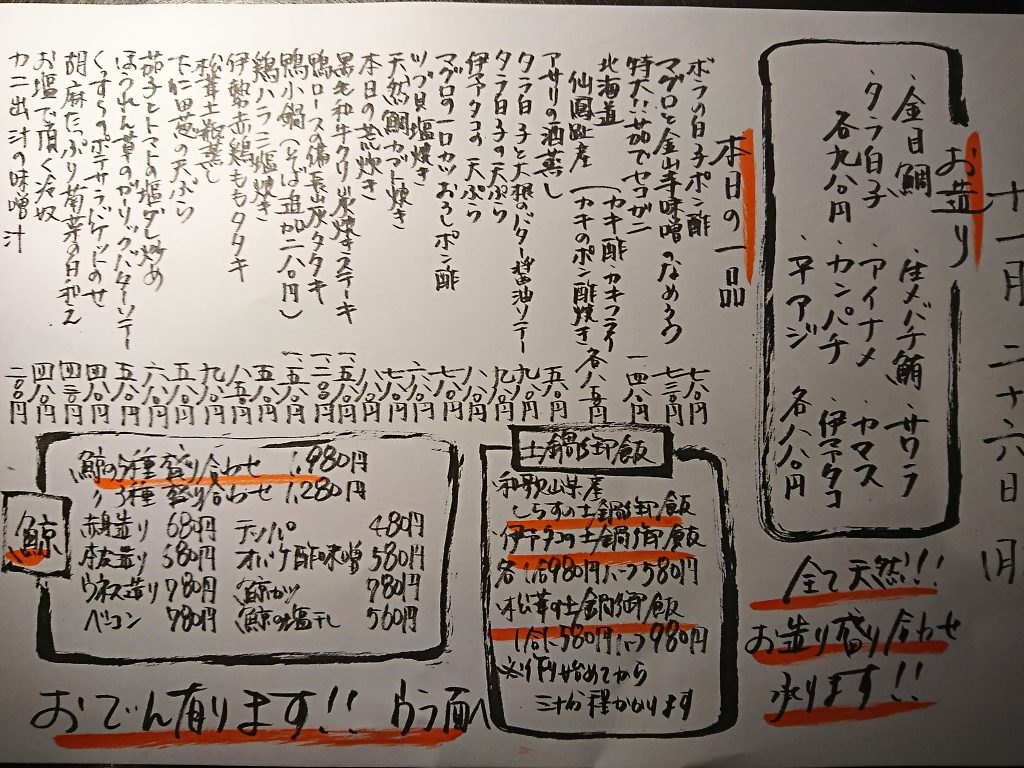 十一月二十六日(月)
お造り
・金目鯛
・生メバチ鮪
・サワラ
・タラ白子
・アイナメ
・カマス
各九八〇円
・カンパチ
・伊予ダコ
・平アジ
各八八〇円
本日の一品
ボラの白子ポン酢 七八〇円
マグロと金山寺味噌のなめろう 七三〇円
特大!!茹でセコガニ 一四八〇円
北海道
仙鳳趾産
カキ酢・カキフライ
カキのポン酢焼き 各八五〇円
アサリの酒蒸し 五八〇円
タラ白子と大根のバター醤油ソテー 九八〇円
タラ白子の天ぷら 九八〇円
伊予ダコの天ぷら 八八〇円
マグロの一口カツおろしポン酢 七八〇円
ツブ貝塩焼き 六八〇円
天然鯛カブト焼き 七八〇円
本日の荒炊き 八八〇円
黒毛和牛クリ炭焼きステーキ
鴨ロースの備長炭タタキ
鴨小鍋(そば追加二八〇円)
鶏ハラミ塩焼き
伊勢赤鶏ももタタキ 八五〇円
松茸土瓶蒸し 九八〇円
下仁田葱の天ぷら 五八〇円
茄子とトマトの塩ダレ炒め 六八〇円
ほうれん草のガーリックバターソテー 五八〇円
くずらのポテサラバゲットのせ 四八〇円
胡麻たっぷり菊菜の白和え 四三〇円
お塩で頂く冷奴 四八〇円
カニ出汁の味噌汁 二〇〇円
全て天然!!
お造り盛り合わせ
承ります!!
土鍋御飯
・和歌山県産
しらすの土鍋御飯
・伊予ダコの土鍋御飯
各1合980円ハーフ580円
・松茸の土鍋御飯
1合1,580円ハーフ980円
※作り始めてから
三十分程かかります
鯨
鯨の5種盛り合わせ 1,980円
〃3種盛り合わせ 1,280円
赤身造り 680円
本皮造り 580円
ウネス造り 780円
ベーコン 980円
テッパ 480円
オバケ酢味噌 580円
鯨かツ 780円
鯨の塩干し 560円
おでん有ります!! ウラ面へ